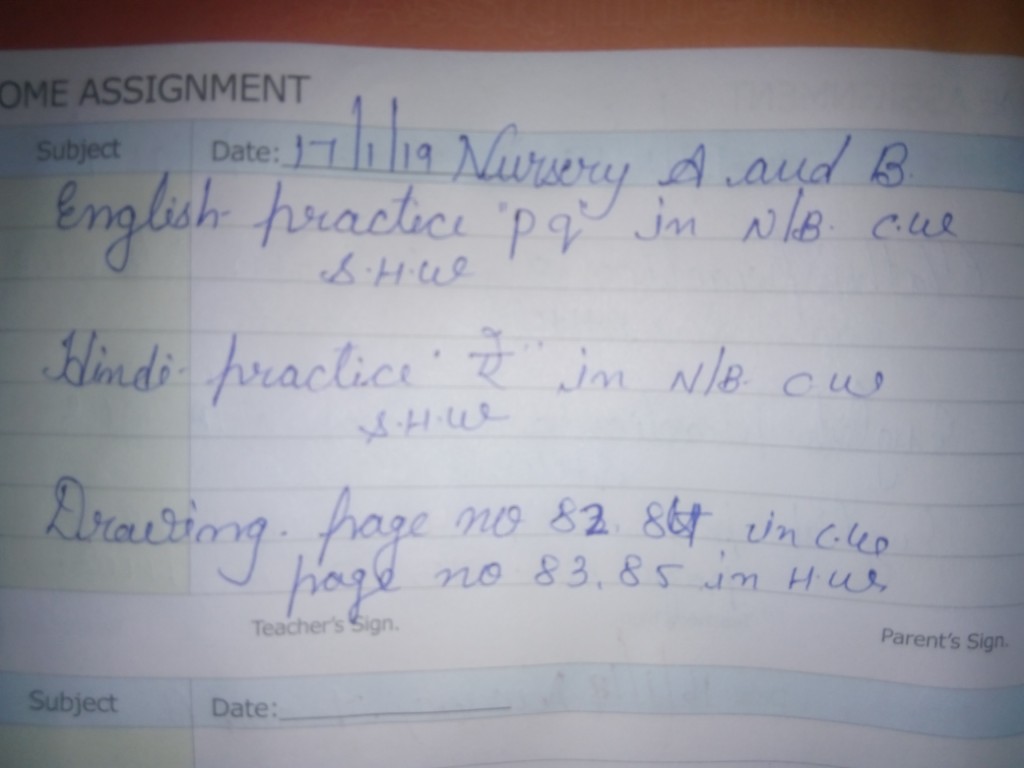 OME ASSIGNMENT
Subject Date: 17/1/19 Nursery A and B.
English practice "p q" in N/B. C.W
S.H.W
Hindi practice "ऐ" in N/B. C W
S.H.W
Drawing. page no 82. 84 in C.W
page no 83. 85 in H.W
Teacher's Sign. Parent's Sign.
Subject Date: